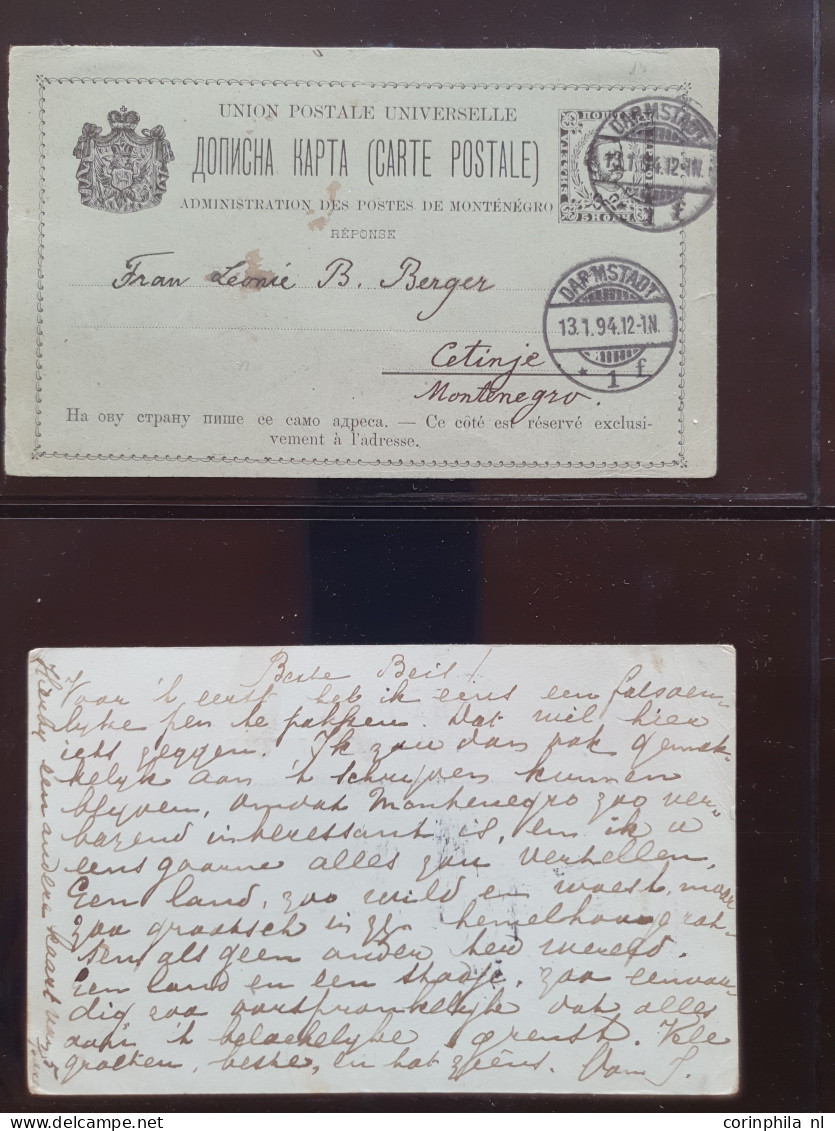 UNION POSTALE UNIVERSELLE
ДОПИСНА КАРТА (CARTE POSTALE)
ADMINISTRATION DES POSTES DE MONTÉNÉGRO
RÉPONSE
DARMSTADT
13.1.94.12-1N.
* 1 f
Frau Leonie B. Berger
DARMSTADT
13.1.94.12-1N.
* 1 f
Cetinje
Montenegro.
На ову страну пише се само адреса. — Ce côté est réservé exclusi-
vement à l'adresse.
Beste Beil!
Voor 't eerst heb ik eens een fatsoen-
lyke pen te pakken. Dat wil hier
iets zeggen. Ik zou dan ook gemak-
kelyk aan 't schryven kunnen
blyven, omdat Montenegro zoo ver-
bazend interessant is, en ik u
eens gaarne alles zou vertellen.
Een land, zoo wild en woest, maar
zoo grootsch in zyn hemelhooge rot-
sen als geen ander ter wereld.
Een land en een stadje, zoo eenvou-
dig zoo oorspronkelyk dat alles
aan 't belachelyke grenst. Vele
groeten, beste, en tot ziens. Van J.
Hierby een andere kaart van
corinphila nl